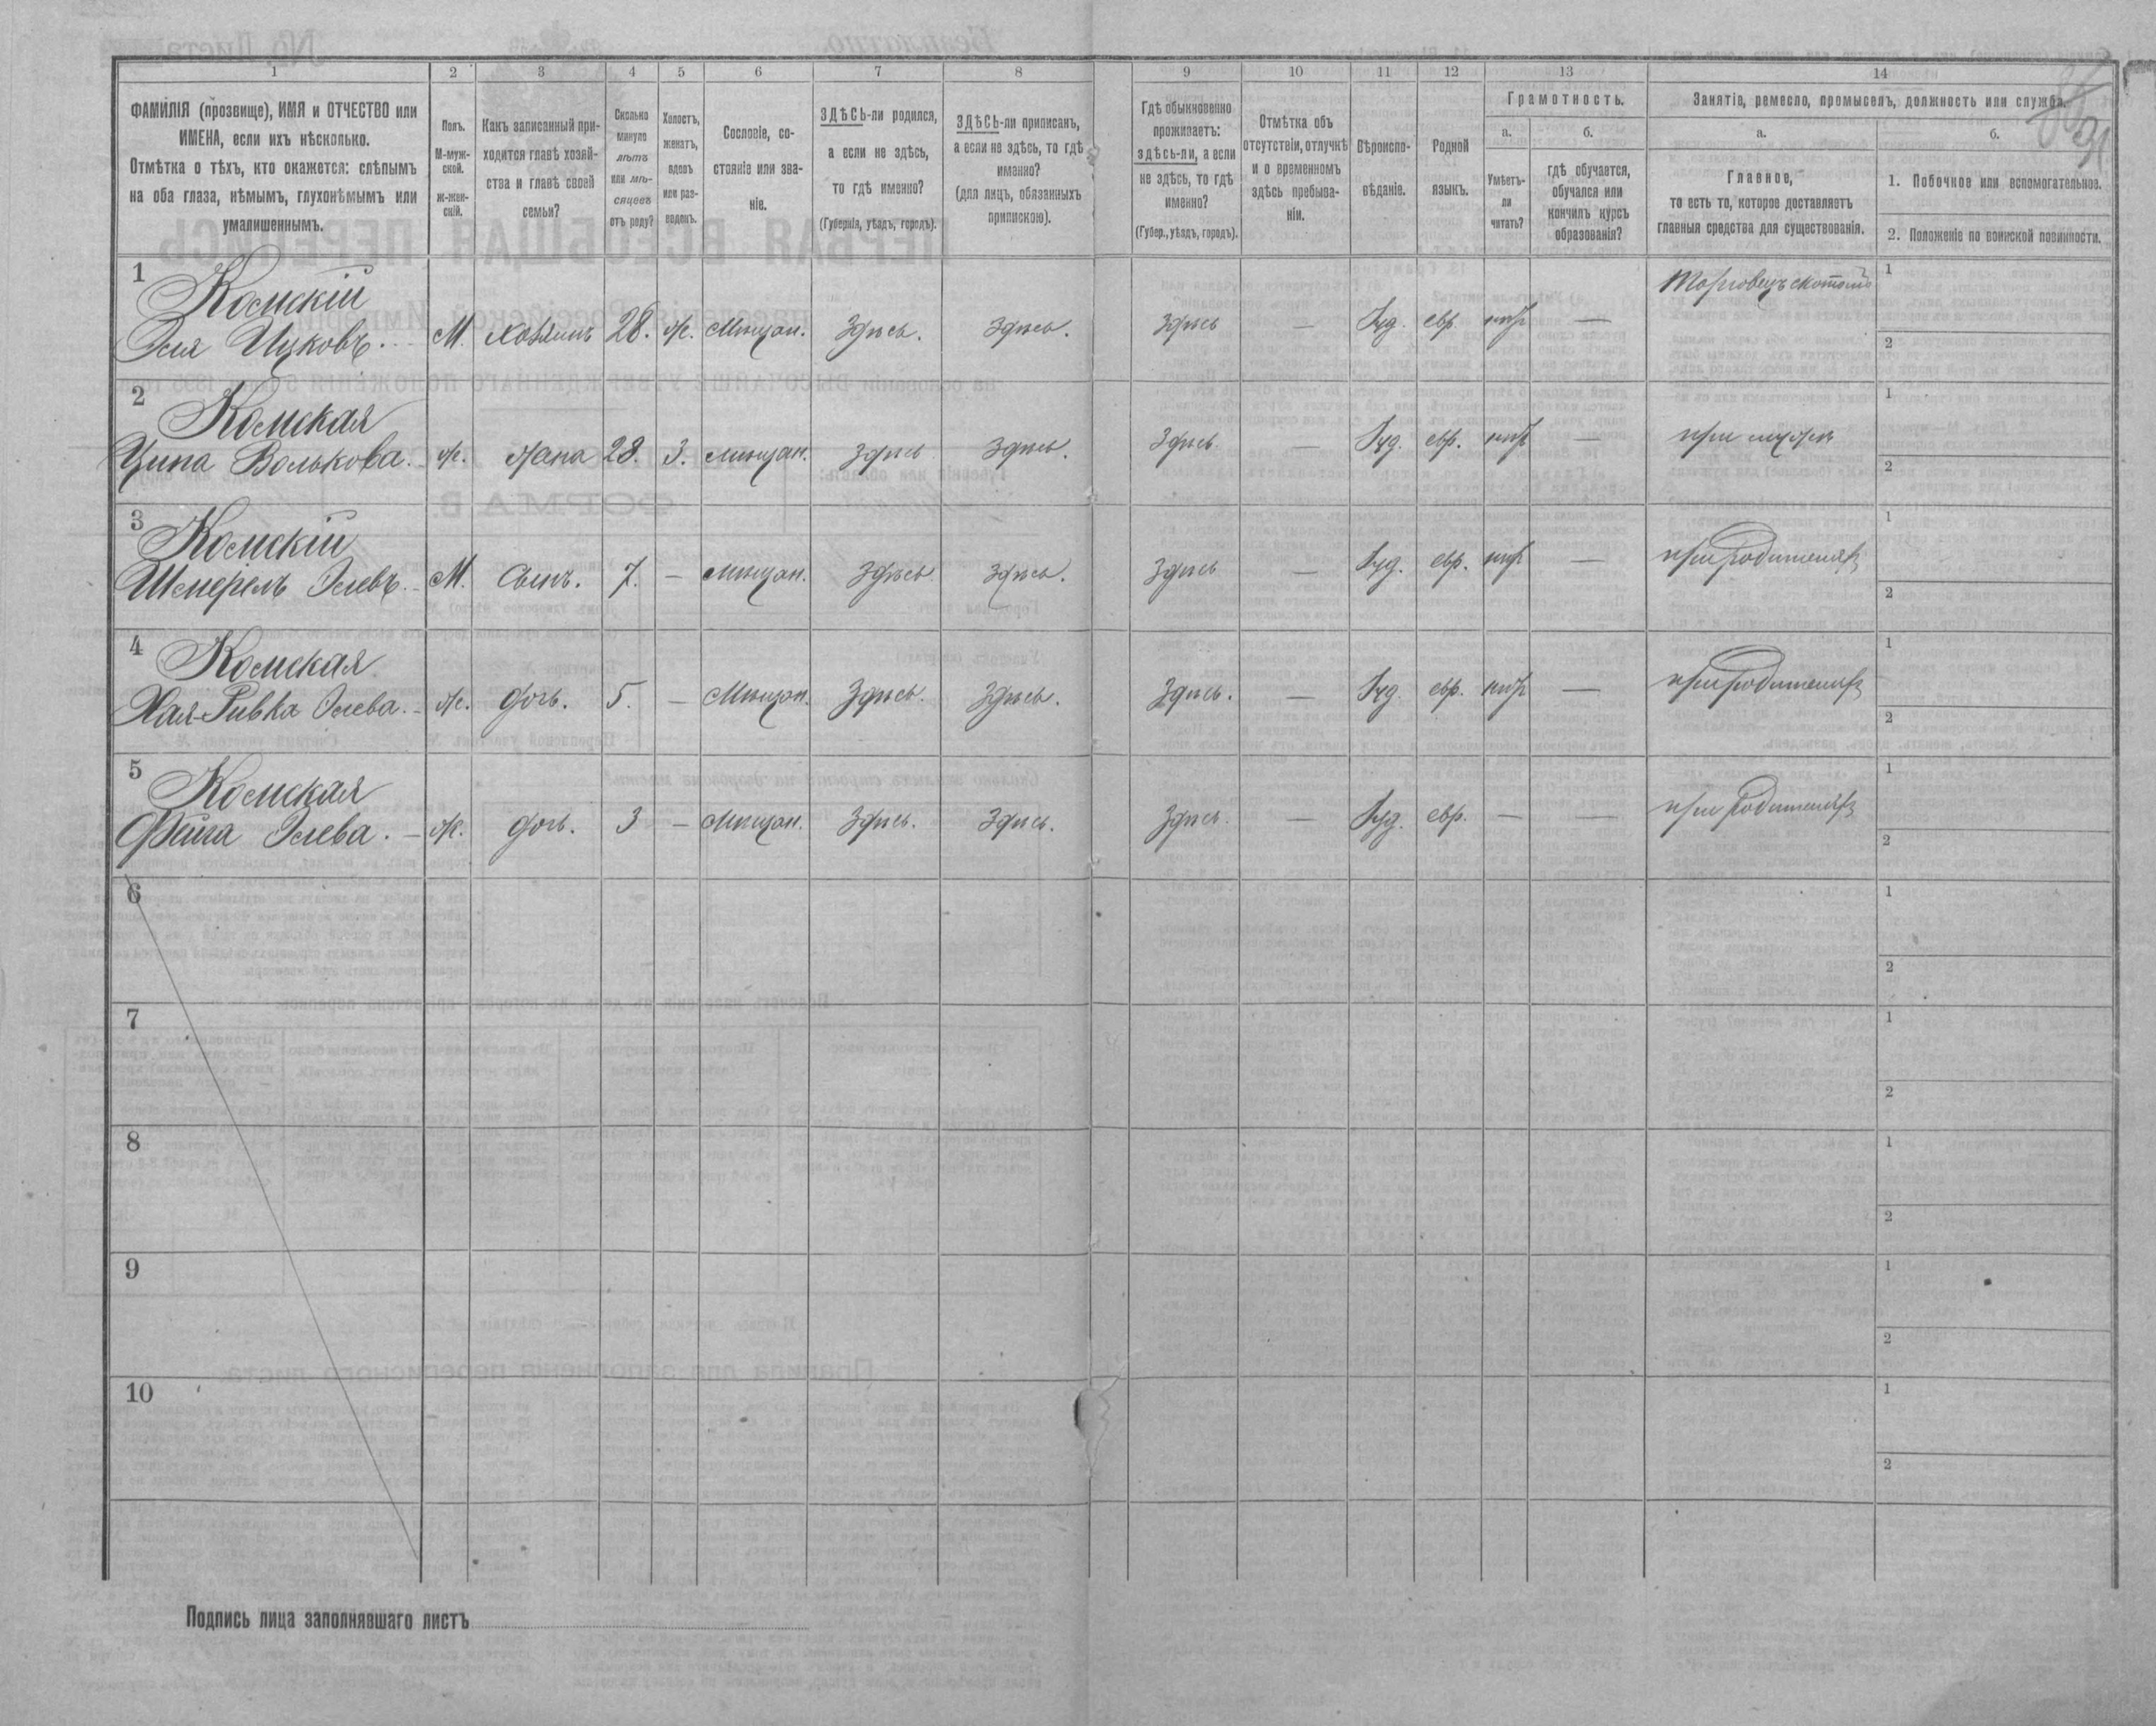 1 2 3 4 5 6 7 8 9 10 11 12 13 14
ФАМИЛІЯ (прозвище), ИМЯ и ОТЧЕСТВО или
ИМЕНА, если ихъ нѣсколько.
Отмѣтка о тѣхъ, кто окажется: слѣпымъ
на оба глаза, нѣмымъ, глухонѣмымъ или
умалишеннымъ.
Полъ.
М-муж-
ской.
ж-жен-
скій.
Какъ записанный при-
ходится главѣ хозяй-
ства и главѣ своей
семьи?
Сколько
минуло
лѣтъ
или мѣ-
сяцевъ
отъ роду?
Холостъ,
женатъ,
вдовъ
или раз-
веденъ.
Сословіе, со-
стояніе или зва-
ніе.
ЗДѢСЬ-ли родился,
а если не здѣсь,
то гдѣ именно?
(Губернія, уѣздъ, городъ).
ЗДѢСЬ-ли приписанъ,
а если не здѣсь, то гдѣ
именно?
(для лицъ, обязанныхъ
припискою).
Гдѣ обыкновенно
проживаетъ:
здѣсь-ли, а если
не здѣсь, то гдѣ
именно?
(Губер., уѣздъ, городъ).
Отмѣтка объ
отсутствіи, отлучкѣ
и о временномъ
здѣсь пребыва-
ніи.
Вѣроиспо-
вѣданіе.
Родной
языкъ.
Грамотность.
а.
Умѣетъ-
ли
читать?
б.
гдѣ обучается,
обучался или
кончилъ курсъ
образованія?
Занятіе, ремесло, промыселъ, должность или служба.
а.
Главное,
то есть то, которое доставляетъ
главныя средства для существованія.
б.
1. Побочное или вспомогательное.
2. Положеніе по воинской повинности.
1 Комскій
Эля Ицковъ. М. хозяинъ 28. ж. Мѣщан. Здѣсь. Здѣсь. Здѣсь — Іуд. евр. — Торговецъ скотомъ 1
2
2 Комская
Ципа Волькова. ж. Жена 28. З. мѣщан. Здѣсь Здѣсь. Здѣсь. — Іуд. евр. — при мужѣ 1
2
3 Комскій
Шмерелъ Элевъ. М. Сынъ. 7. — мѣщан. Здѣсь. Здѣсь. Здѣсь — Іуд. евр. — при родителяхъ 1
2
4 Комская
Хая-Ривка Элева. ж. дочь. 5. — Мѣщан. Здѣсь. Здѣсь. Здѣсь. — Іуд. евр. — при родителяхъ 1
2
5 Комская
Фейга Элева. ж. дочь. 3 — Мѣщан. Здѣсь. Здѣсь. Здѣсь. — Іуд. евр. — — при родителяхъ 1
2
6 1
2
7 1
2
8 1
2
9 1
2
10 1
2
Подпись лица заполнявшаго листъ